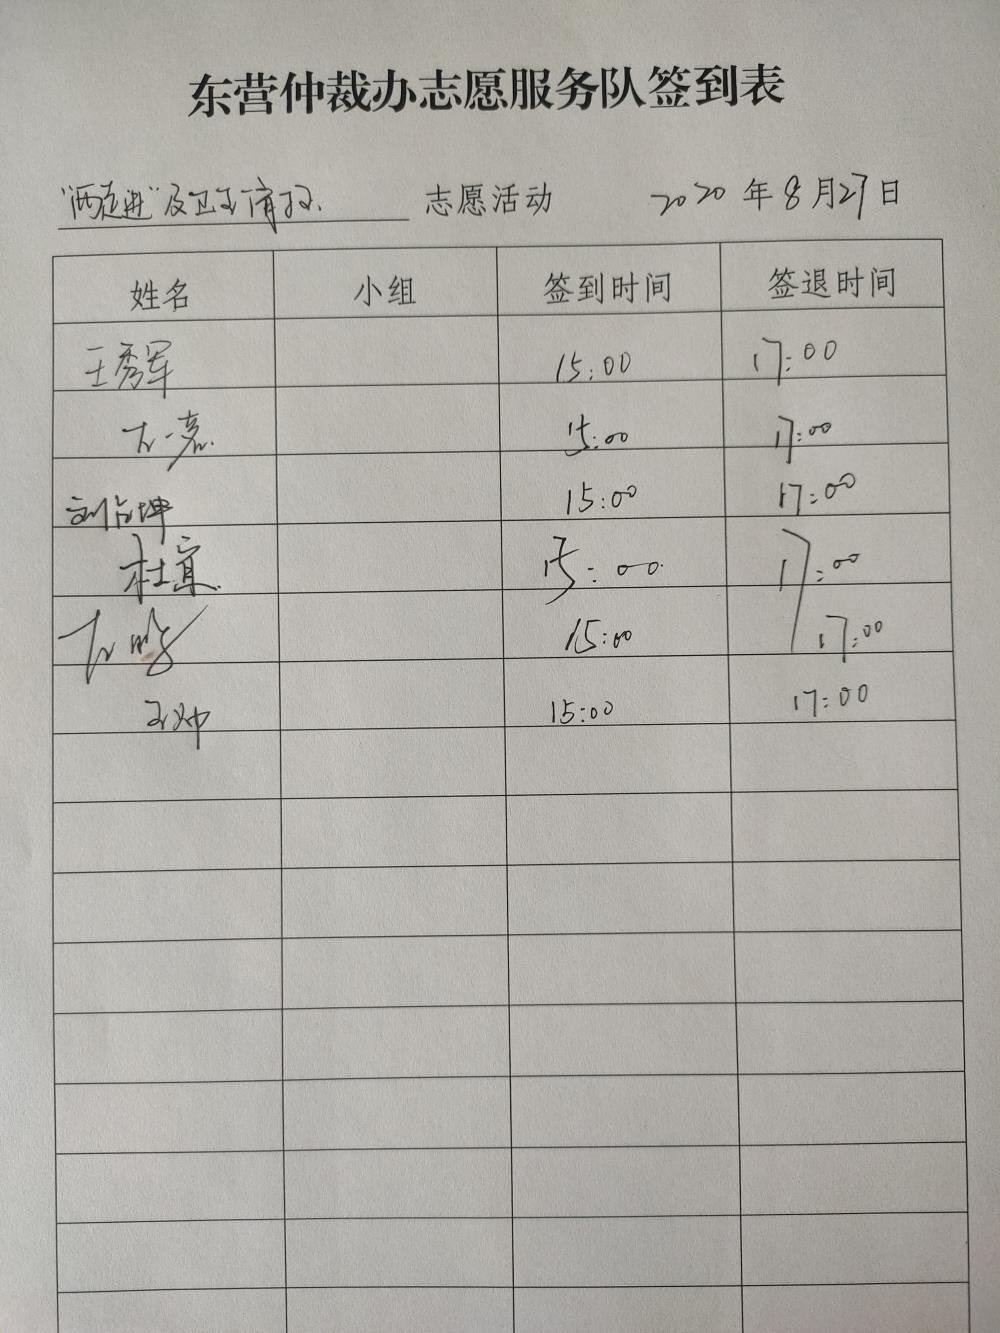 东营仲裁办志愿服务队签到表
"两走进"及卫生清扫 志愿活动 2020年8月27日
姓名 小组 签到时间 签退时间
王秀军 15:00 17:00
15:00 17:00
刘占坤 15:00 17:00
杜宜 15:00 17:00
15:00 17:00
15:00 17:00